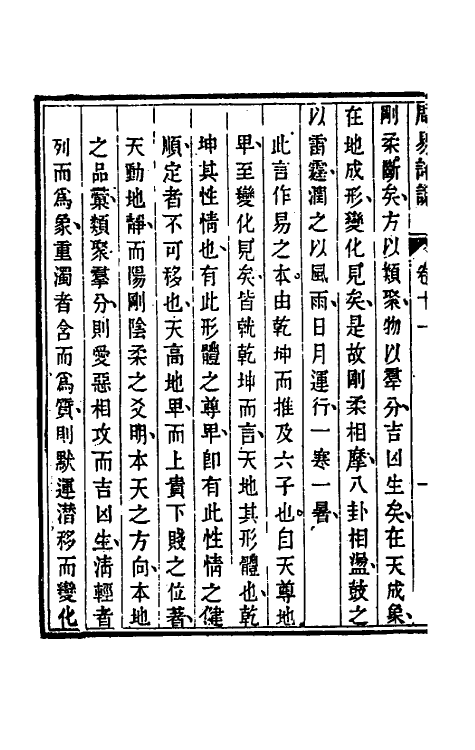 周易 卷十一 一
剛柔斷矣方以類聚物以羣分吉凶生矣在天成象
在地成形變化見矣是故剛柔相摩八卦相盪鼓之
以雷霆潤之以風雨日月運行一寒一暑
此言作易之本由乾坤而推及六子也自天尊地
卑至變化見矣皆就乾坤而言天地其形體也乾
坤其性情也有此形體之尊卑卽有此性情之健
順定者不可移也天高地卑而上貴下賤之位著
天動地靜而陽剛陰柔之爻明本天之方向本地
之品彙類聚羣分則愛惡相攻而吉凶生淸輕者
列而爲象重濁者含而爲質則默運潛移而變化